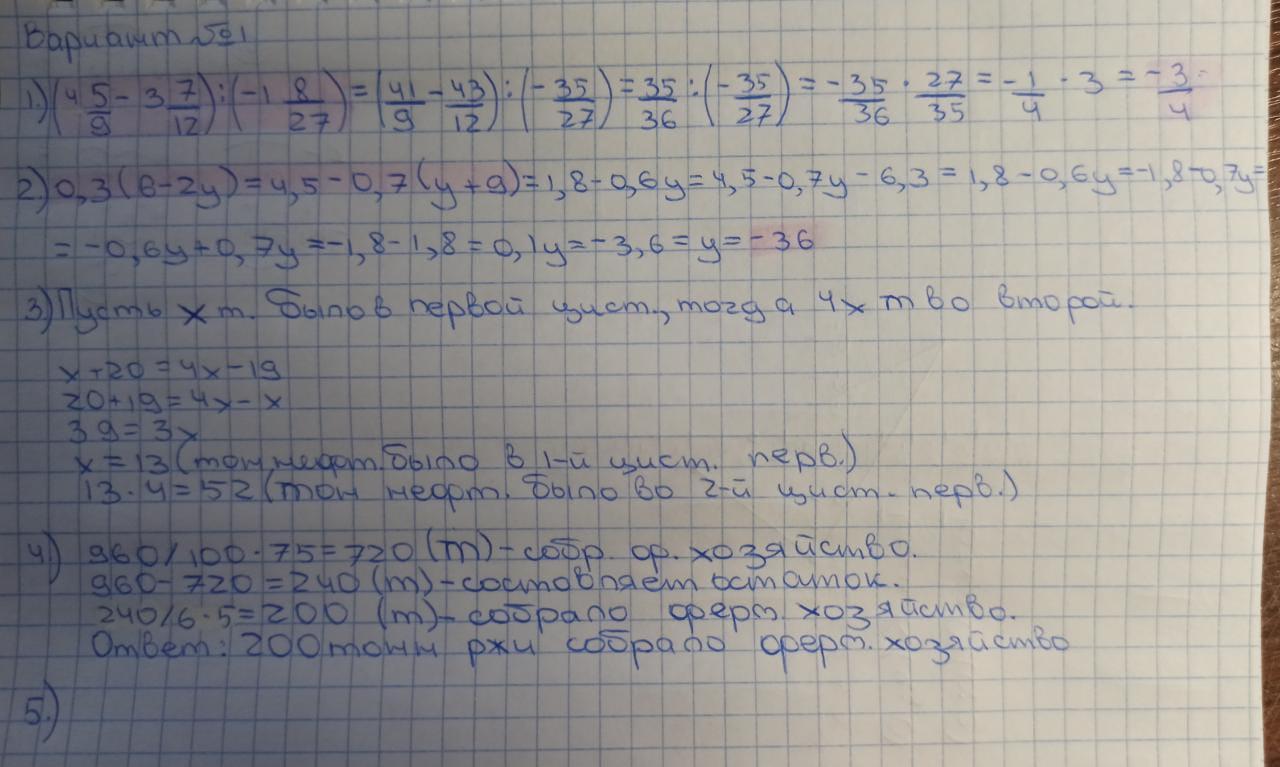 Вариант №1
1.) (4 5/9 - 3 7/12) : (-1 8/27) = (41/9 - 43/12) : (-35/27) = 35/36 : (-35/27) = -35/36 · 27/35 = -1/4 · 3 = -3/4
2.) 0,3(6-2y)=4,5-0,7(y+9)=1,8-0,6y=4,5-0,7y-6,3=1,8-0,6y=-1,8-0,7y=
= -0,6y+0,7y=-1,8-1,8=0,1y=-3,6=y=-36
3) Пусть x т. было в первой цист., тогда 4x т во второй.
x+20=4x-19
20+19=4x-x
39=3x
x=13 (тон нефт. было в 1-й цист. перв.)
13·4=52 (тон нефт. было во 2-й цист. перв.)
4) 960/100·75=720 (т)-собр. ф. хозяйство.
960-720=240 (т)-составляет остаток.
240/6·5=200 (т)-собрало ферт. хозяйство.
Ответ: 200 тонн ржи собрало ферт. хозяйство
5.)